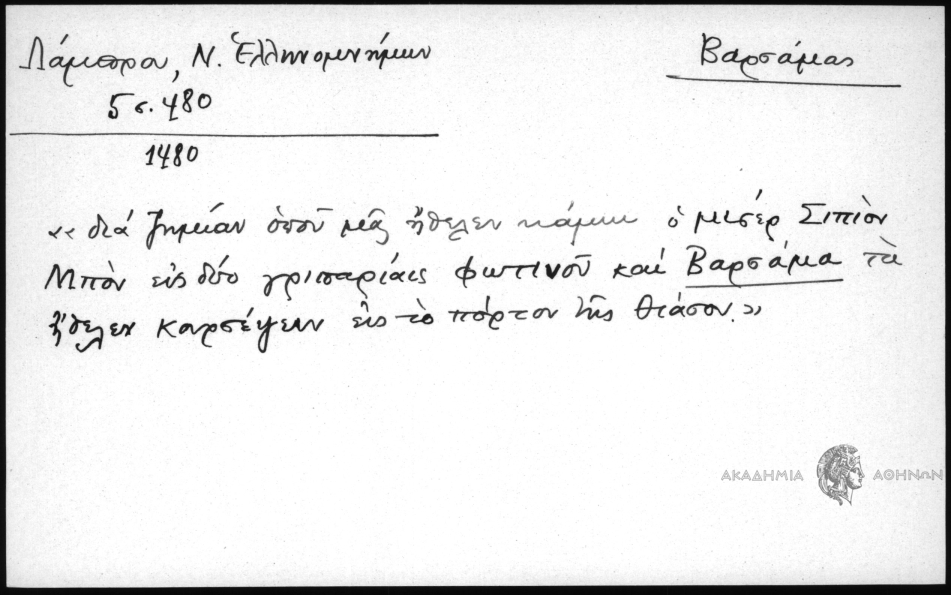 Λάμπρου, Ν. Ἑλληνομνήμων
Βαρσάμας
5 σ. 480
1480
«διά ζημίαν ὁποῦ μᾶς ἤθελεν κάμει ὁ μισέρ Σιπιὸν
Μπὸν εἰς δύο γριπαρίαις Φωτινοῦ καί Βαρσάμα τὰ
ἤθελεν κουρσέψειν εἰς τὸ πόρτον τῆς Θάσου.»
ΑΚΑΔΗΜΙΑ ΑΘΗΝΩΝ